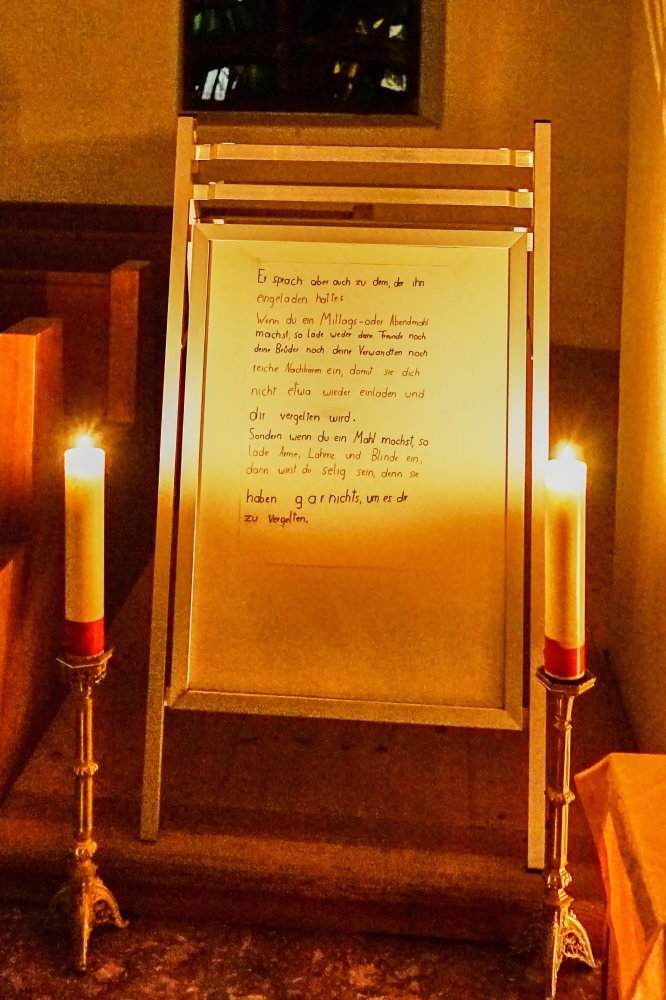 Er sprach aber auch zu dem, der ihn
eingeladen hatte:
Wenn du ein Mittags-oder Abendmahl
machst, so lade weder deine Freunde noch
deine Brüder noch deine Verwandten noch
reiche Nachbaren ein, damit sie dich
nicht etwa wieder einladen und
dir vergelten wird.
Sondern wenn du ein Mahl machst, so
lade Arme, Lahme und Blinde ein,
dann wirst du selig sein, denn sie
haben garnichts, um es dir
zu vergelten.